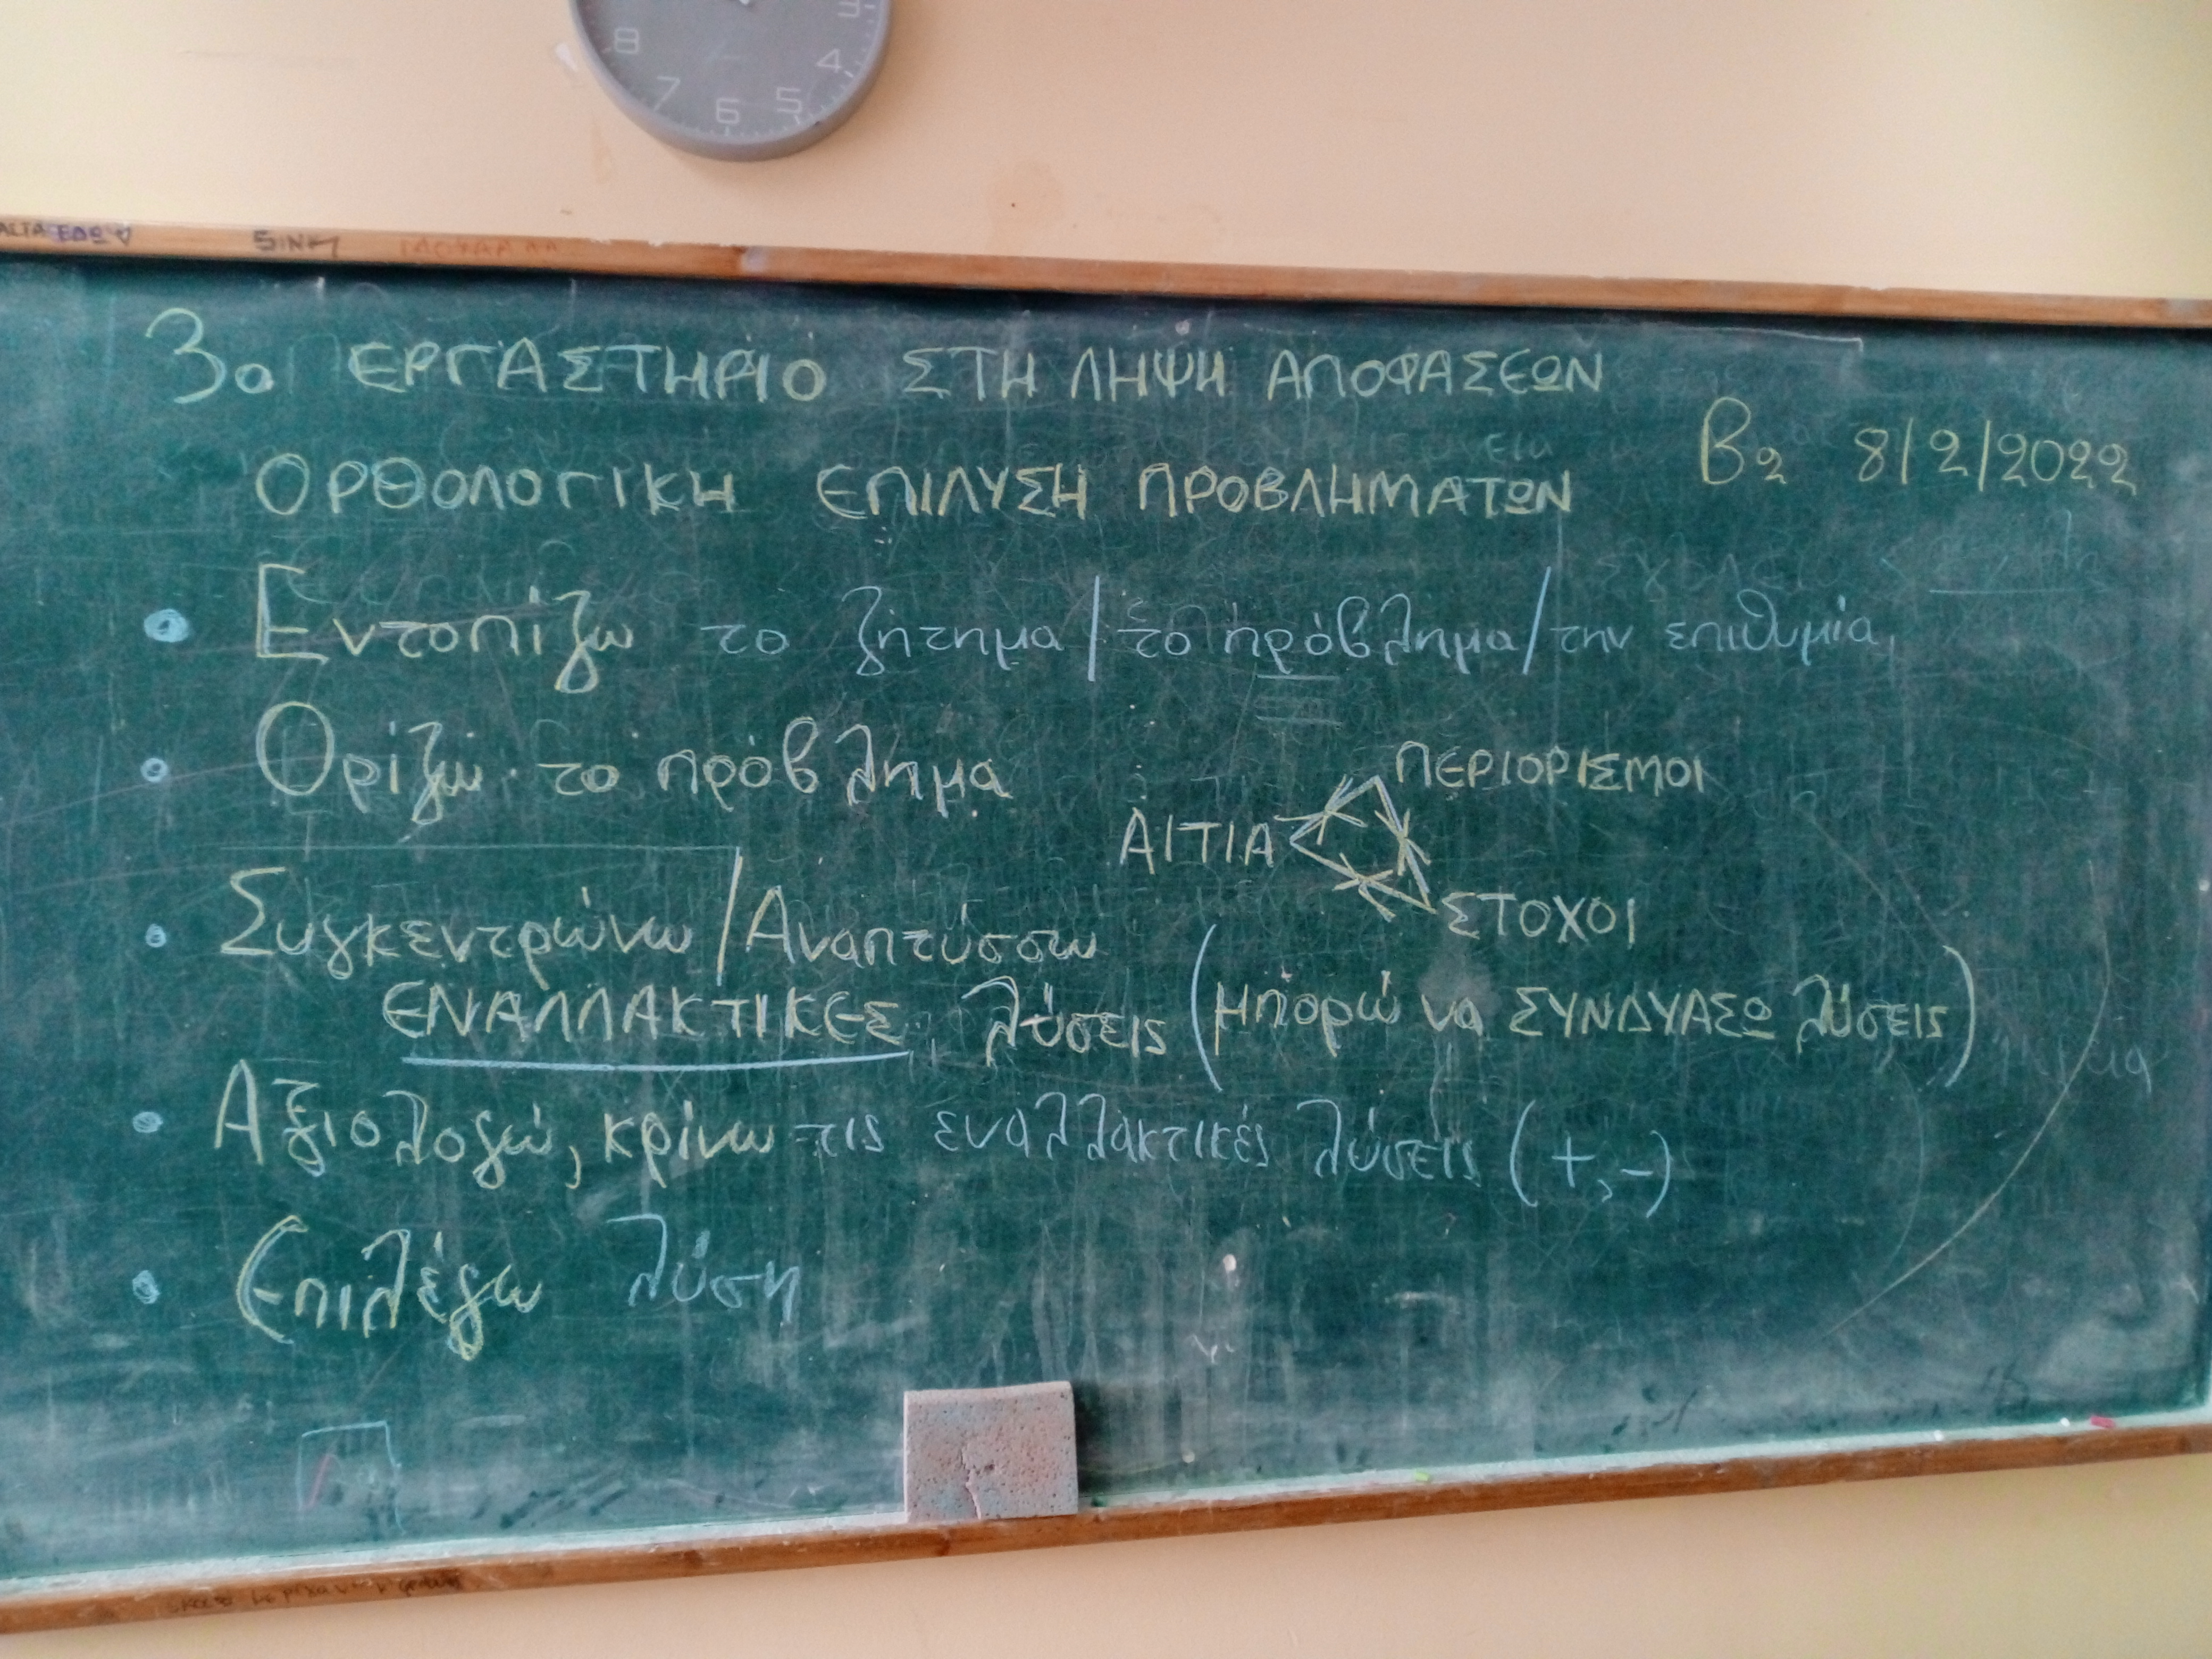 8 7 6 5 4 3
ΕΔΩ
3ο ΕΡΓΑΣΤΗΡΙΟ ΣΤΗ ΛΗΨΗ ΑΠΟΦΑΣΕΩΝ
Β2 8/2/2022
ΟΡΘΟΛΟΓΙΚΗ ΕΠΙΛΥΣΗ ΠΡΟΒΛΗΜΑΤΩΝ
• Εντοπίζω το ζήτημα/το πρόβλημα/την επιθυμία
• Ορίζω το πρόβλημα
ΠΕΡΙΟΡΙΣΜΟΙ
ΑΙΤΙΑ
ΣΤΟΧΟΙ
• Συγκεντρώνω/Αναπτύσσω
ΕΝΑΛΛΑΚΤΙΚΕΣ λύσεις (μπορώ να ΣΥΝΔΥΑΣΩ λύσεις)
• Αξιολογώ, κρίνω τις εναλλακτικές λύσεις (+,-)
• Επιλέγω λύση